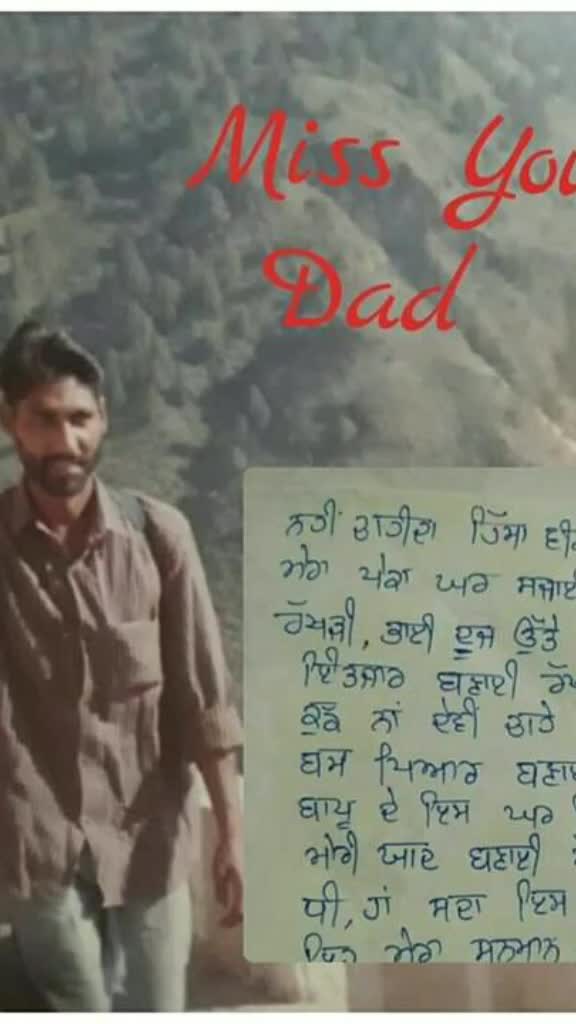 Miss You
Dad
ਨਹੀਂ ਚਾਹੀਦਾ ਹਿੱਸਾ ਵੀਰ
ਮੇਰਾ ਪੇਕਾ ਘਰ ਸਜਾਈ
ਰੱਖੜੀ, ਭਾਈ ਦੂਜ ਉੱਤੇ
ਇੰਤਜ਼ਾਰ ਬਣਾਈ ਰੱ
ਕੁੱਛ ਨਾਂ ਦੇਵੀਂ ਚਾਹੇ
ਬਸ ਪਿਆਰ ਬਣਾ
ਬਾਪੂ ਦੇ ਇਸ ਘਰ
ਮੇਰੀ ਯਾਦ ਬਣਾਈ
ਧੀ, ਹਾਂ ਸਦਾ ਇਸ
ਮੇਰਾ ਸਨਮਾਨ